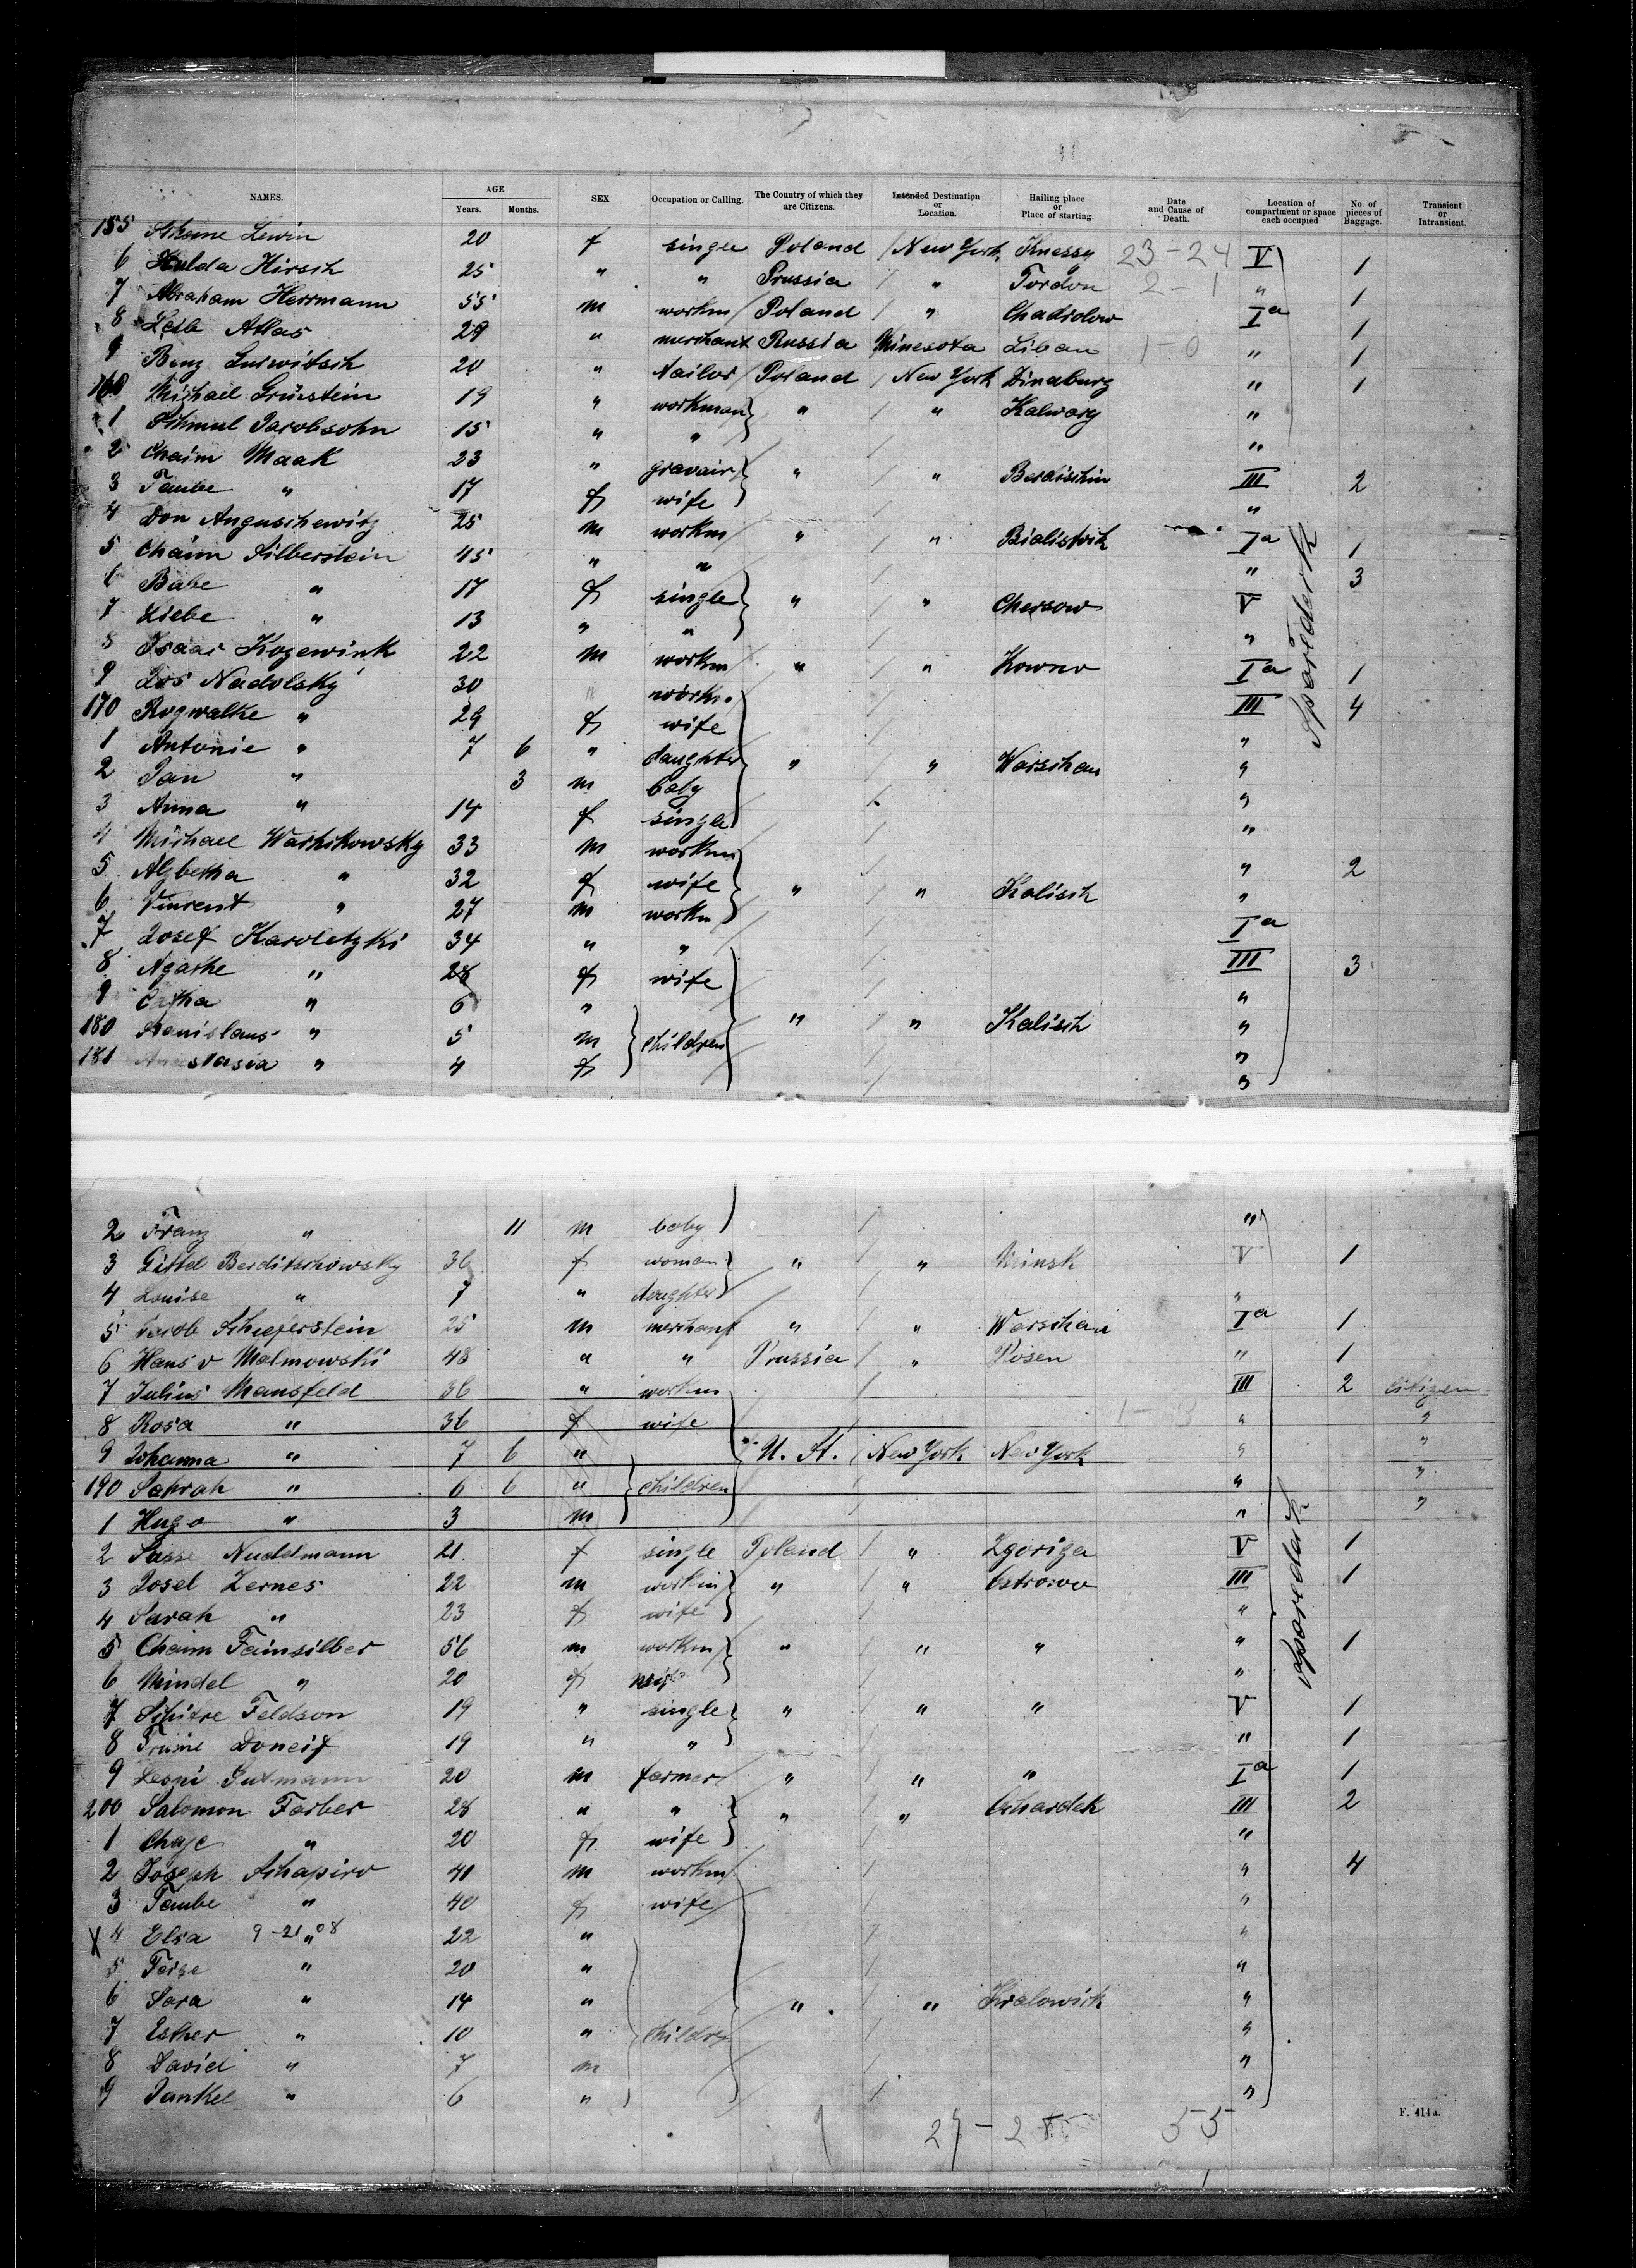 NAMES. AGE Years. Months. SEX Occupation or Calling. The Country of which they are Citizens. Intended Destination or Location. Hailing place or Place of starting. Date and Cause of Death. Location of compartment or space each occupied No. of pieces of Baggage. Transient or Intransient.
155 Lewin 20 f single Poland / New York 23-24 V
6 Hulda Hirsch 25 " " Prussia / " Fordon 2-1 " 1
7 Abraham Herrmann 55 m workm Poland / " Ia 1
8 Leib Atlas 29 " merchant Russia Minesota Libau 1-0 " 1
9 20 " tailor Poland / New York Dinaburg " 1
160 Michael Grünstein 19 " workman " / " Kalwary "
1 Schmul Jacobsohn 15 " " / "
2 Chaim Maak 23 " gravair " / " III 2
3 Taube " 17 f wife / "
4 Don Anguschewitz 25 m workm " / " Bialistock Ia 1
5 Chaim Silberstein 45 " " / " 3
6 Babe " 17 f single " / " Chersow V
7 Liebe " 13 " " / "
8 Isaac Kozewink 22 m workm " / " Kowno Ia 1
9 Nadolsky 30 workm / III 4
170 " 29 f wife / "
1 Antonie " 7 6 " daughter " / " Warschau "
2 Jan " 3 m baby /
3 Anna " 14 f single / "
4 Michael Washikowsky 33 m workm / " 2
5 Alzbetha " 32 f wife " / " Kalisch "
6 Vincent " 27 m workm / Ia
7 Josef Karoletzki 34 " " / III 3
8 Agathe " 28 f wife / "
9 " 6 " " / " Kalisch "
180 Stanislaus " 5 m children / "
181 Anastasia " 4 f / "
Sparedeck
2 Franz " 11 m baby / "
3 Gittel Berditschowsky 36 f woman " / " Minsk V 1
4 Louise " 7 " daughter / "
5 Jacob Schieferstein 25 m merchant " / " Warschau Ia 1
6 Hans v Malmowski 48 " " Prussia / " Posen " 1
7 Julius Mansfeld 36 " workm / III 2 Citizen
8 Rosa " 36 f wife / 1-3 " "
9 Johanna " 7 6 " U. St. / New York New York " "
190 Sahrah " 6 6 " children / " "
1 Hugo " 3 m / " "
2 Nuddmann 21 f single Poland / " V 1
3 Josel Zernes 22 m workm " / " Ostrowo III 1
4 Sarah " 23 f wife / "
5 Chaim Fainsilber 56 m workm " / " " " 1
6 Mindel " 20 f wife / "
7 Feldson 19 " single " / " " V 1
8 19 " " / " 1
9 Gutmann 20 m farmer " / " " Ia 1
200 Salomon Farber 28 " " " / " III 2
1 Chaje " 20 f wife / "
2 Joseph Schapiro 41 m workm / " 4
3 Taube " 40 f wife / "
X 4 Elsa 9-21-08 " 22 " / "
5 " 20 " / "
6 Sara " 14 " " / " "
7 Esther " 10 " children / "
8 David " 7 m / "
9 Jankel " 6 " / "
Sparedeck
55
F. 414a.